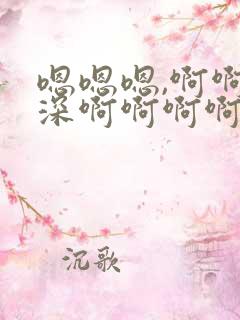 嗯嗯嗯,啊啊
深啊啊啊啊
沉歌